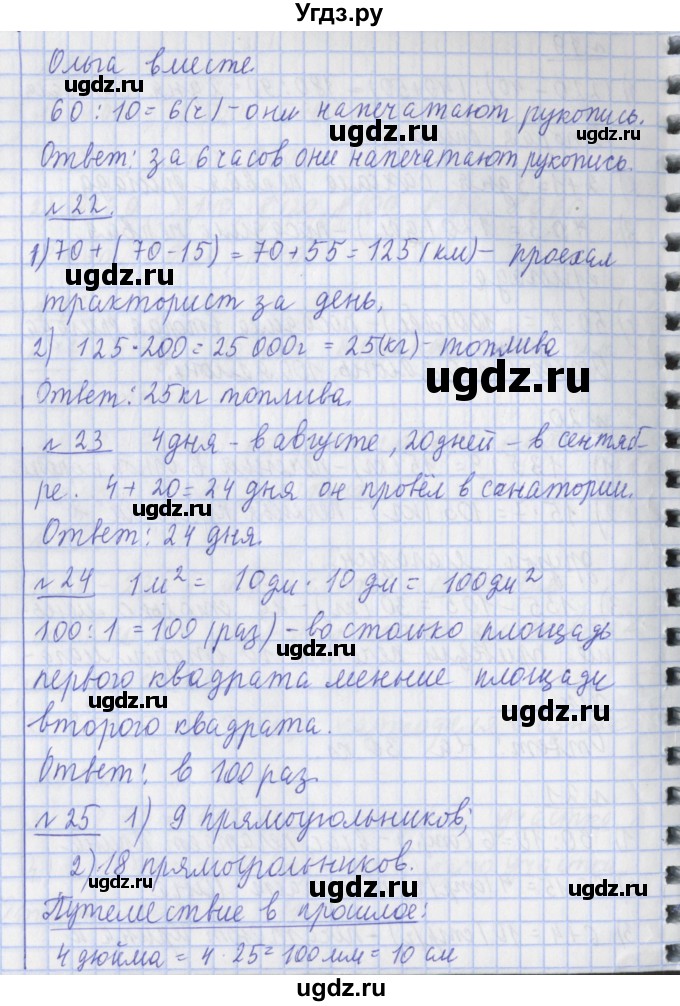 Угдз.ру
Ольга вместе.
60 : 10 = 6(ч) – они напечатают рукопись.
ugdz.ru
Ответ: за 6 часов они напечатают рукопись.
ugdz.ru
№ 22.
1) 70 + (70-15) = 70 + 55 = 125 (км) – проехал
ugdz.ru ugdz.ru
тракторист за день.
2) 125 · 200 = 25 000г = 25(кг) – топлива
ugdz.ru
Ответ: 25кг топлива.
ugdz.ru
№ 23 4 дня – в августе, 20 дней – в сентяб-
ре. 4 + 20 = 24 дня он провёл в санатории.
ugdz.ru ugdz.ru
Ответ: 24 дня.
ugdz.ru
№ 24 1м² = 10дм · 10дм = 100дм²
100 : 1 = 100 (раз) – во столько площадь
ugdz.ru
первого квадрата меньше площади
ugdz.ru
второго квадрата.
Ответ: в 100 раз.
ugdz.ru
№ 25 1) 9 прямоугольников;
ugdz.ru
2) 18 прямоугольников.
ugdz.ru
Путешествие в прошлое:
ugdz.ru
4 дюйма = 4 · 25 = 100 мм = 10 см
ugdz.ru